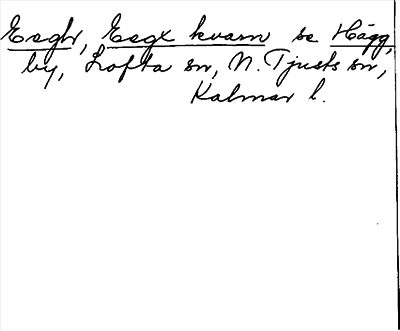 Esghr, Esgx kvarn se Hägg,
by, Lofta sn, N. Tjusts sn,
Kalmar l.